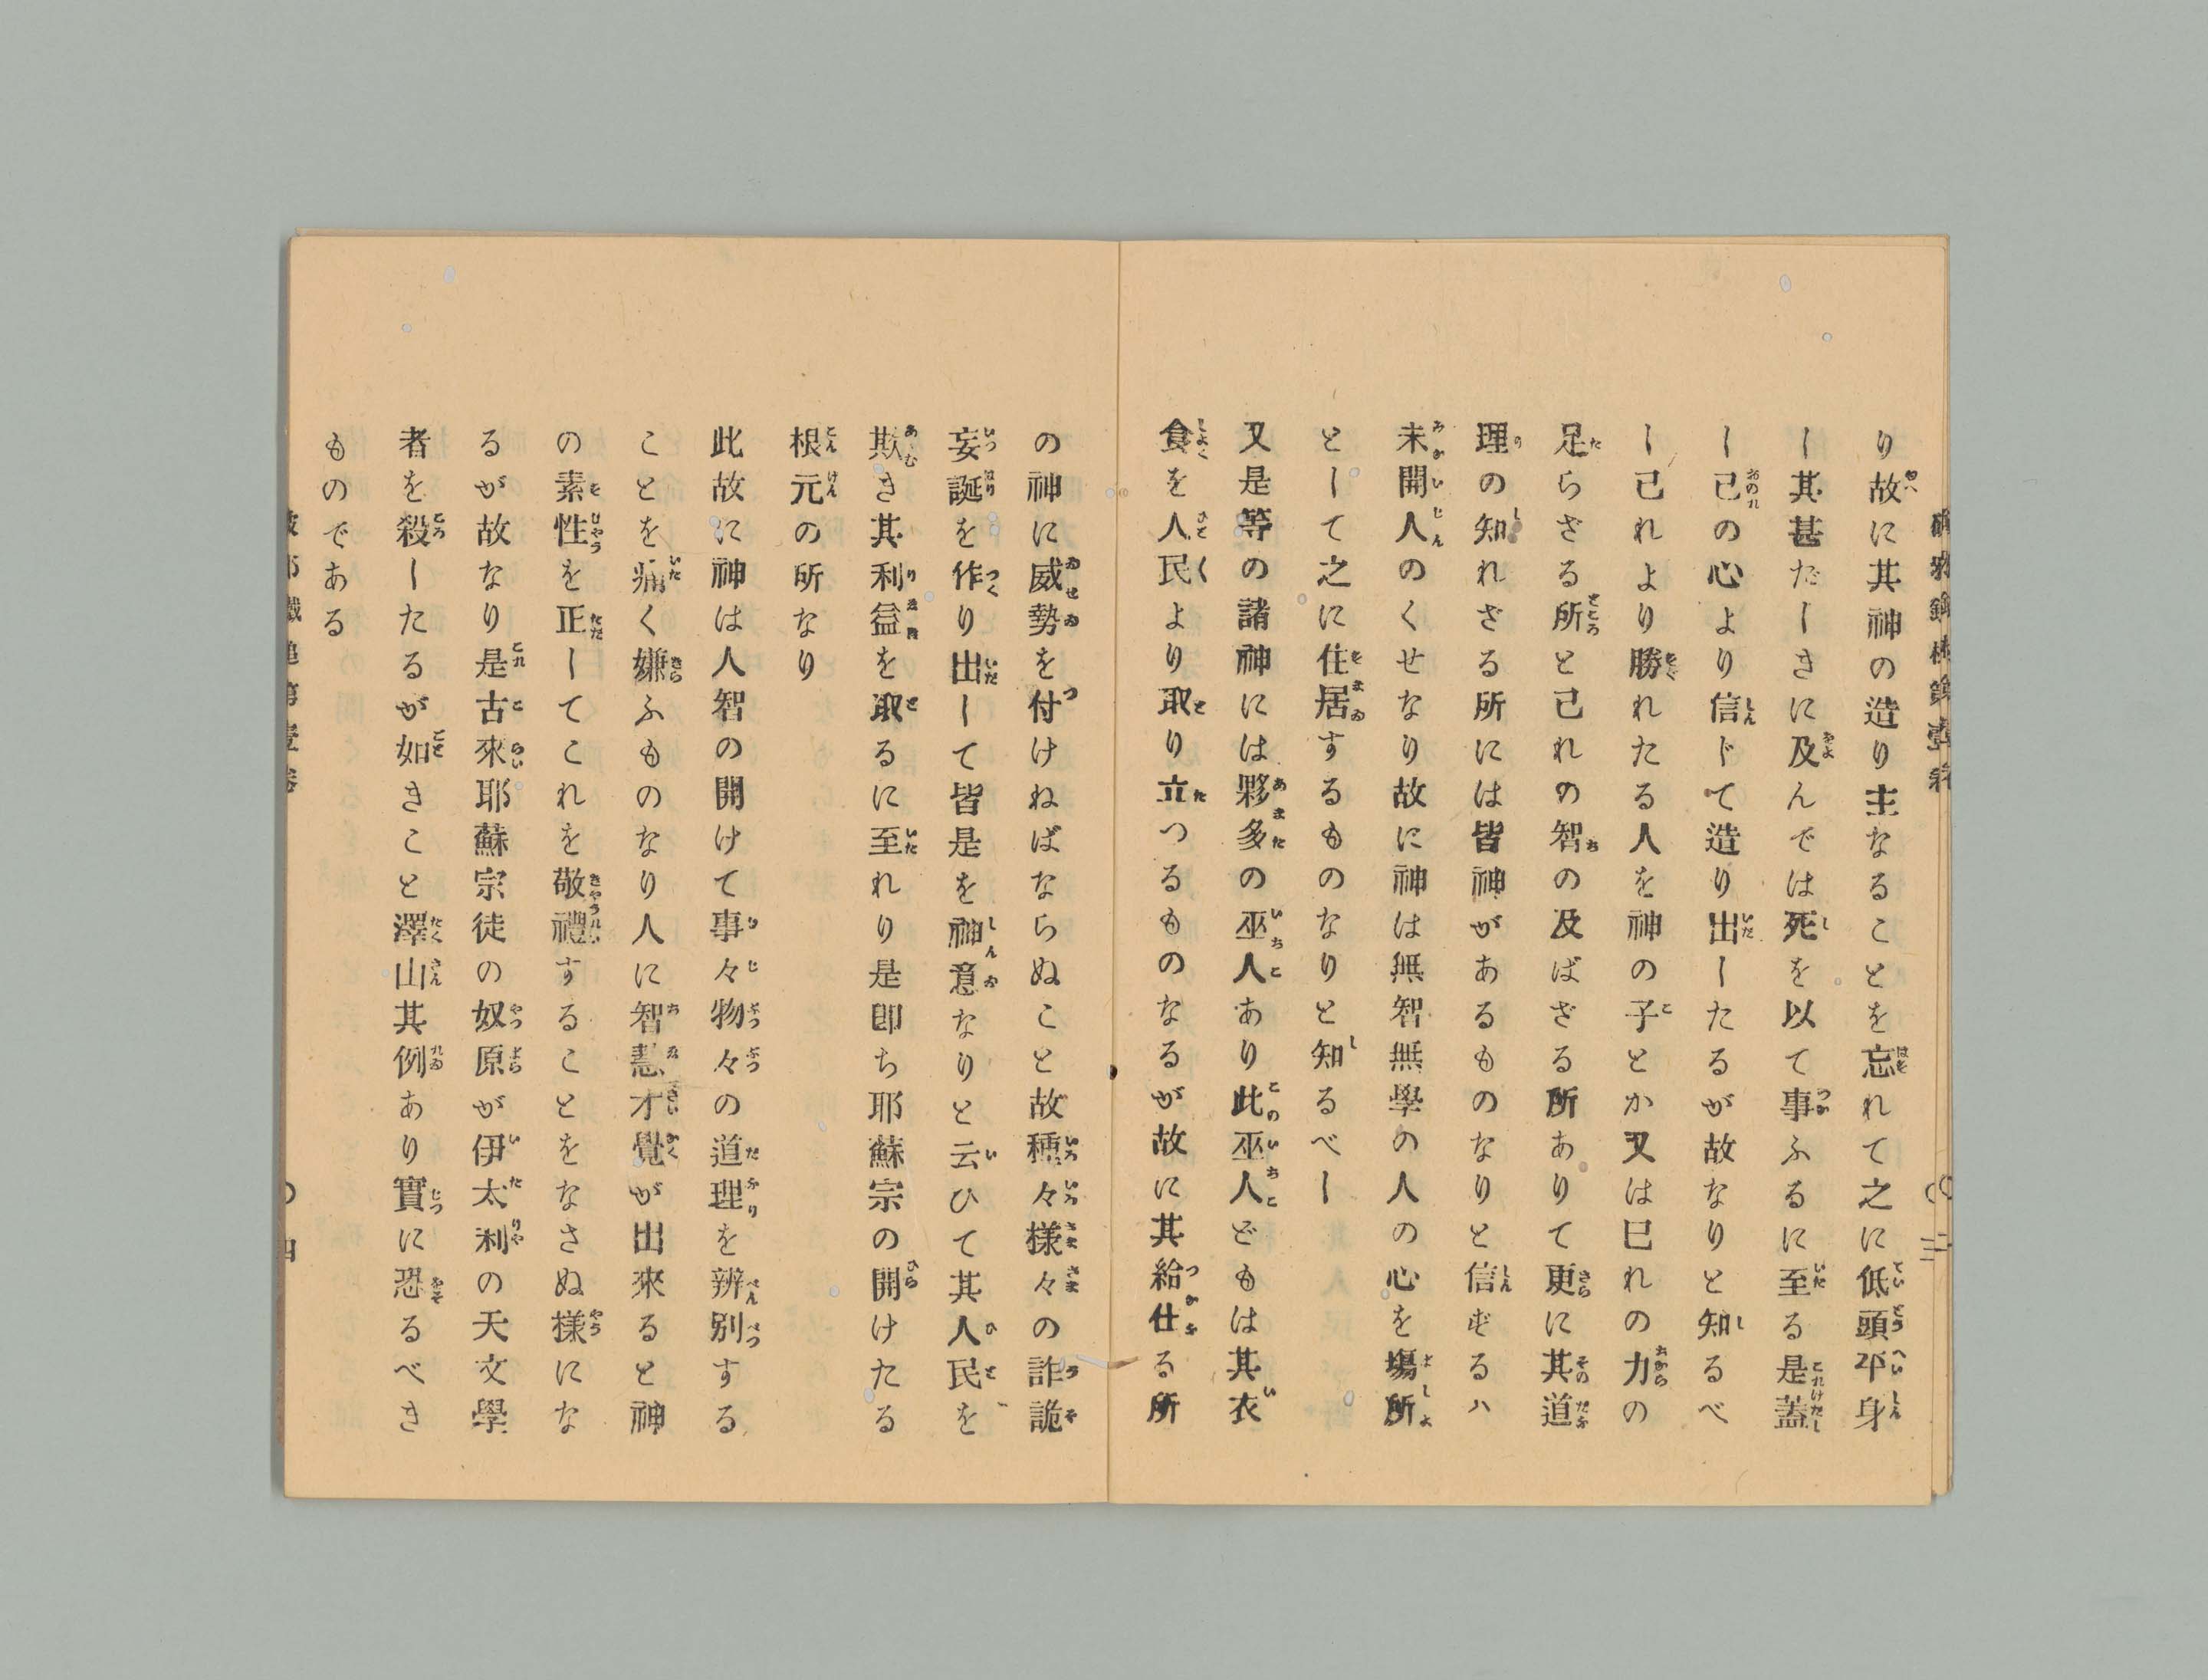 り故に其神の造り主なることを忘れて之に低頭平身
し其甚だしきに及んでは死を以て事ふるに至る是蓋
し己の心より信じて造り出したるが故なりと知るべ
し己れより勝れたる人を神の子とか又は巳れの力の
足らざる所と己れの智の及ばざる所ありて更に其道
理の知れざる所には皆神があるものなりと信ずるハ
未開人のくせなり故に神は無智無學の人の心を塲所
として之に住居するものなりと知るべし
又是等の諸神には夥多の巫人あり此巫人どもは其衣
食を人民より取り立つるものなるが故に其給仕る所
の神に威勢を付けねばならぬこと故種々樣々の詐詭
妄誕を作り出して皆是を神意なりと云ひて其人民を
欺き其利益を取るに至れり是卽ち耶蘇宗の開けたる
根元の所なり
此故に神は人智の開けて事々物々の道理を辨別する
ことを痛く嫌ふものなり人に智慧才覺が出來ると神
の素性を正してこれを敬禮することをなさぬ樣にな
るが故なり是古來耶蘇宗徒の奴原が伊太利の天文學
者を殺したるが如きこと澤山其例あり實に恐るべき
ものである
破耶鐵槌第壹卷
〇四